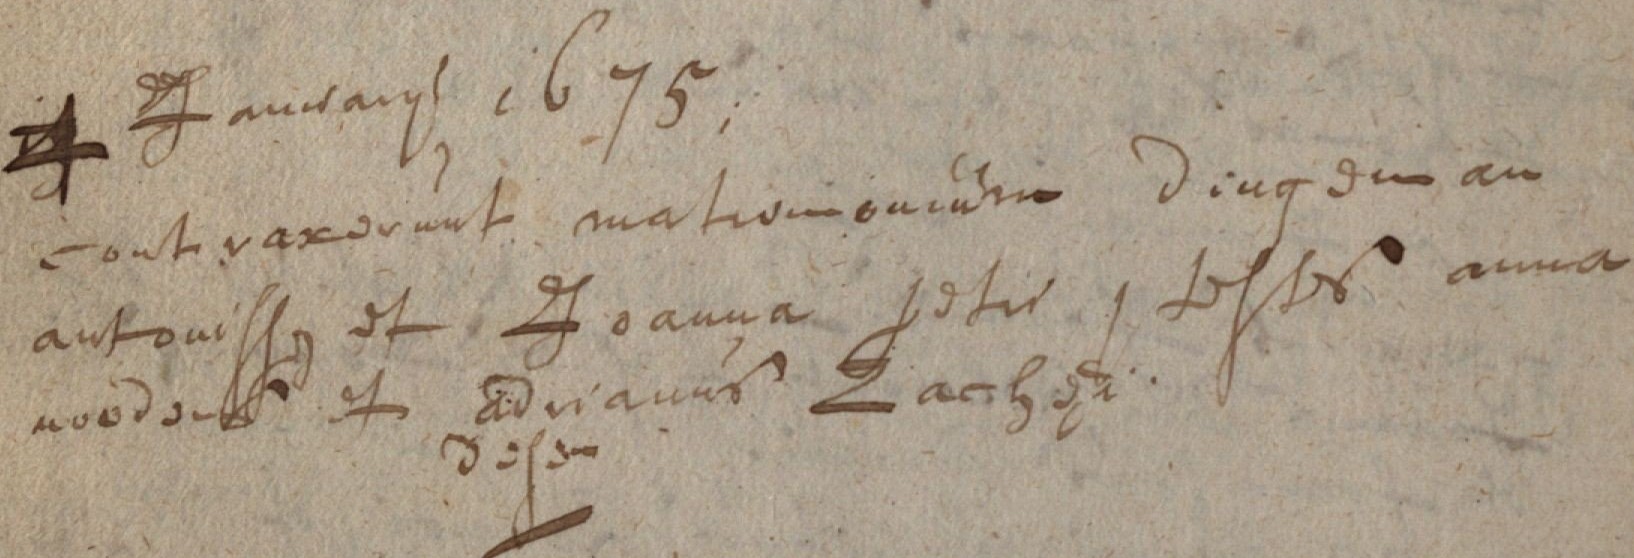 4 Januarij 1675,
contraxerunt matrimonium dingeman
antonissen et Joanna petri, testes anna
noodens et adrianus Zachei.
desen